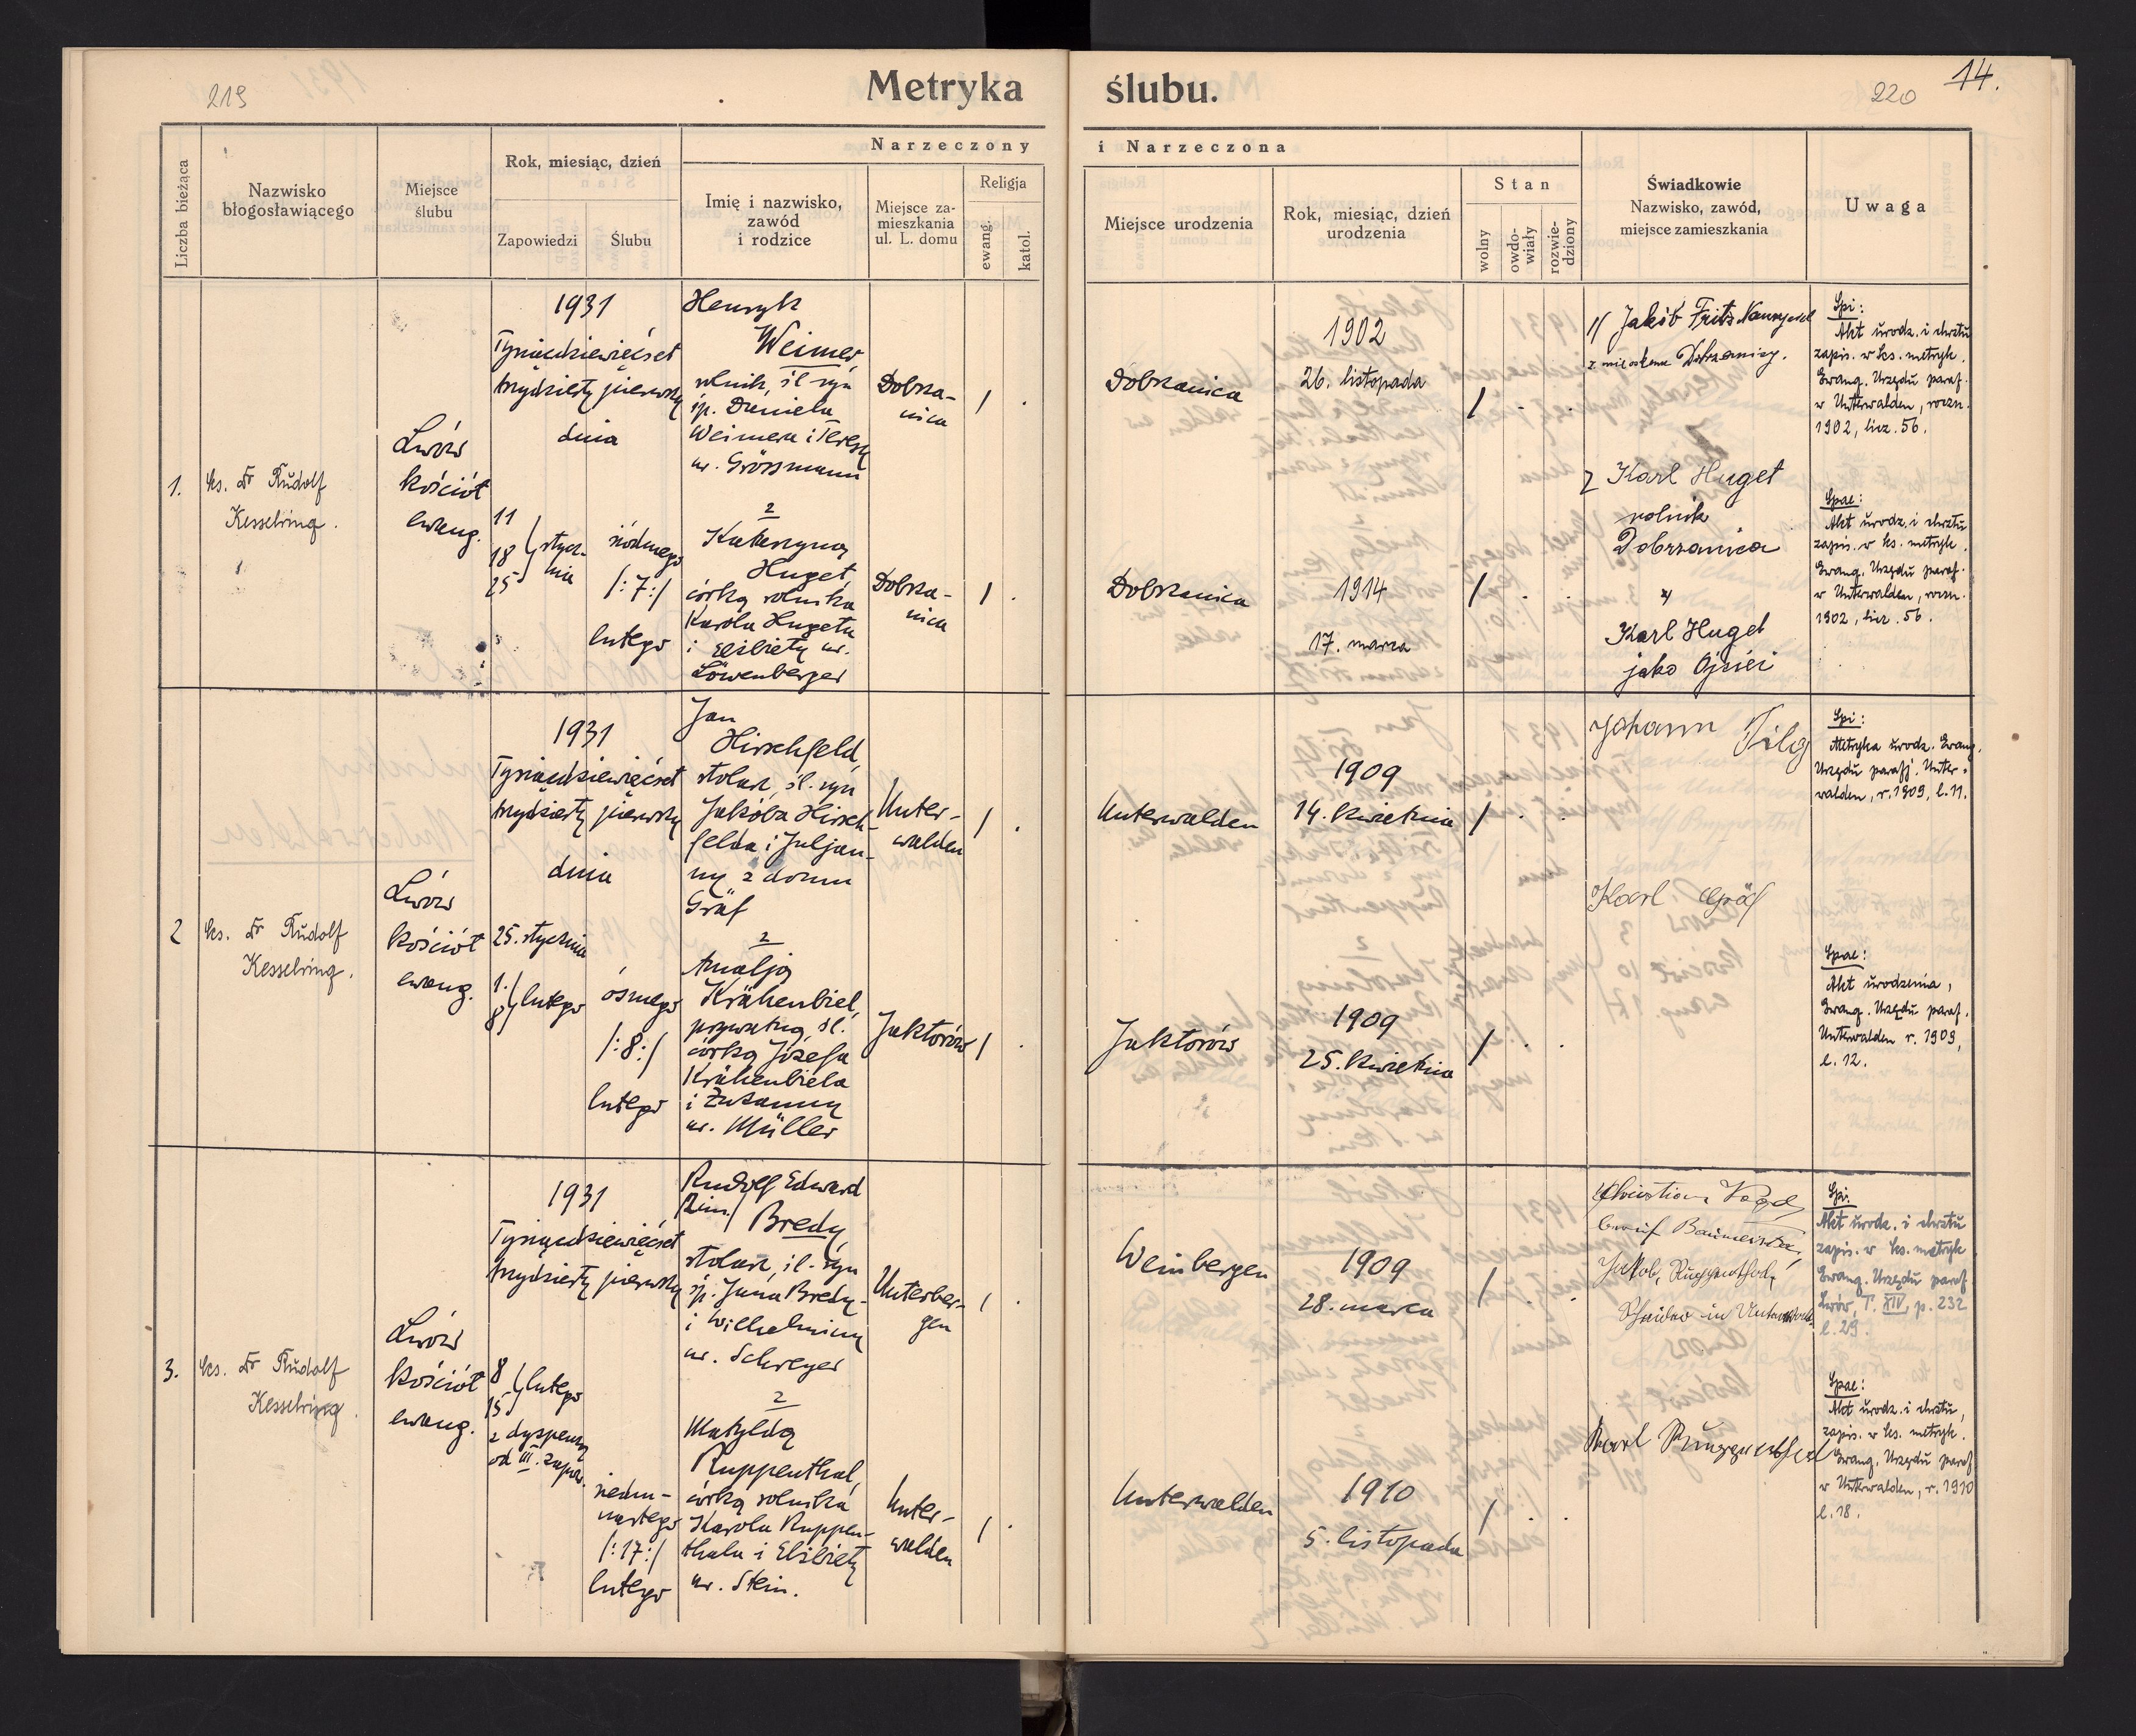 219
Metryka
ślubu.
220
14.
Liczba bieżąca
Nazwisko
błogosławiącego
Miejsce
ślubu
Rok, miesiąc, dzień
Zapowiedzi
Ślubu
Narzeczony
Imię i nazwisko,
zawód
i rodzice
Miejsce za-
mieszkania
ul. L. domu
Religja
ewang.
katol.
i Narzeczona
Miejsce urodzenia
Rok, miesiąc, dzień
urodzenia
Stan
wolny
owdo-
wiały
rozwie-
dziony
Świadkowie
Nazwisko, zawód,
miejsce zamieszkania
Uwaga
1.
ks. Dr Rudolf
Kesselring.
Lwów
kościół
ewang.
1931
Tysiącdziewięćset
trzydziesty pierwszy
dnia
11
18
25
stycz-
nia
siódmego
/:7:/
lutego
Henryk
Weimer,
rolnik, śl. syn
śp. Daniela
Weimera i Teresy
ur. Grössmann
z
Katarzyną
Huget,
córką rolnika
Karola Hugeta
i Elżbiety ur.
Löwenberger
Dobrza-
nica
1
Dobrza-
nica
1
Dobrzanica
1902
26. listopada
1
Dobrzanica
1914
17. marca
1
1/ Jakób Fritz
Karl Huget
rolnik
Dobrzanica
Karl Huget
jako Ojciec
Spi:
Akt urodz. i chrztu
zapis. w ks. metryk.
Ewang. Urzędu paraf.
w Unterwalden, roczn.
1902, licz. 56.
Spae:
Akt urodz. i chrztu
zapis. w ks. metryk.
Ewang. Urzędu paraf.
w Unterwalden, roczn.
1902, licz. 56.
2
ks. Dr Rudolf
Kesselring.
Lwów
kościół
ewang.
1931
Tysiącdziewięćset
trzydziesty pierwszy
dnia
25. stycznia
1.
8
lutego
ósmego
/:8:/
lutego
Jan
Hirschfeld,
stolarz, śl. syn
Jakóba Hirsch-
felda i Juljan-
ny z domu
Gräf
z
Amalją
Krähenbiel,
prywatną śl.
córką Józefa
Krähenbiela
i Zuzanny
ur. Müller
Unter-
walden
1
Jaktorów
1
Unterwalden
1909
14. kwietnia
1
Jaktorów
1909
25. kwietnia
1
Johann Filg
Karl Gräf
Spi:
Metryka urodz. Ewang.
Urzędu parafj. Unter-
walden, r. 1909, l. 11.
Spae:
Akt urodzenia,
Ewang. Urzędu paraf.
Unterwalden r. 1909,
l. 12.
3.
ks. Dr Rudolf
Kesselring
Lwów
kościół
ewang.
1931
Tysiącdziewięćset
trzydziesty pierwszy
8
15
lutego
z dyspensą
od III. zapow.
siedm-
nastego
/:17:/
lutego
Rudolf Edward
/2im./ Bredy,
stolarz, śl. syn
śp. Jana Bredy
i Wilhelminy
ur. Schreyer
z
Matyldą
Ruppenthal,
córką rolnika
Karola Ruppen-
thala i Elżbiety
ur. Stein.
Unterber-
gen
1
Unter-
walden
1
Weinbergen
1909
28. marca
1
Unterwalden
1910
5. listopada
1
Christian Vogel
beruf Baumeister,
Jakob Ruppenthal,
Karl Ruppenthal
Spi.
Akt urodz. i chrztu
zapis. w ks. metryk
Ewang. Urzędu paraf.
Lwów, T. XIV, p. 232
l. 29.
Spae:
Akt urodz. i chrztu,
zapis. w ks. metryk.
Ewang. Urzędu paraf
w Unterwalden, r. 1910
l. 18.